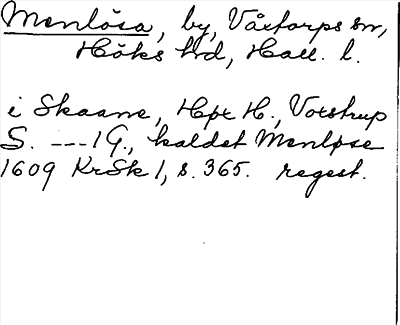 Menlösa, by, Våxtorps sn,
Höks hrd, Hall. l.
i Skaane, Hpr H., Vorstrup
S. ---1 G., kaldet Menløse
1609 KrSk 1, s. 365. regest.